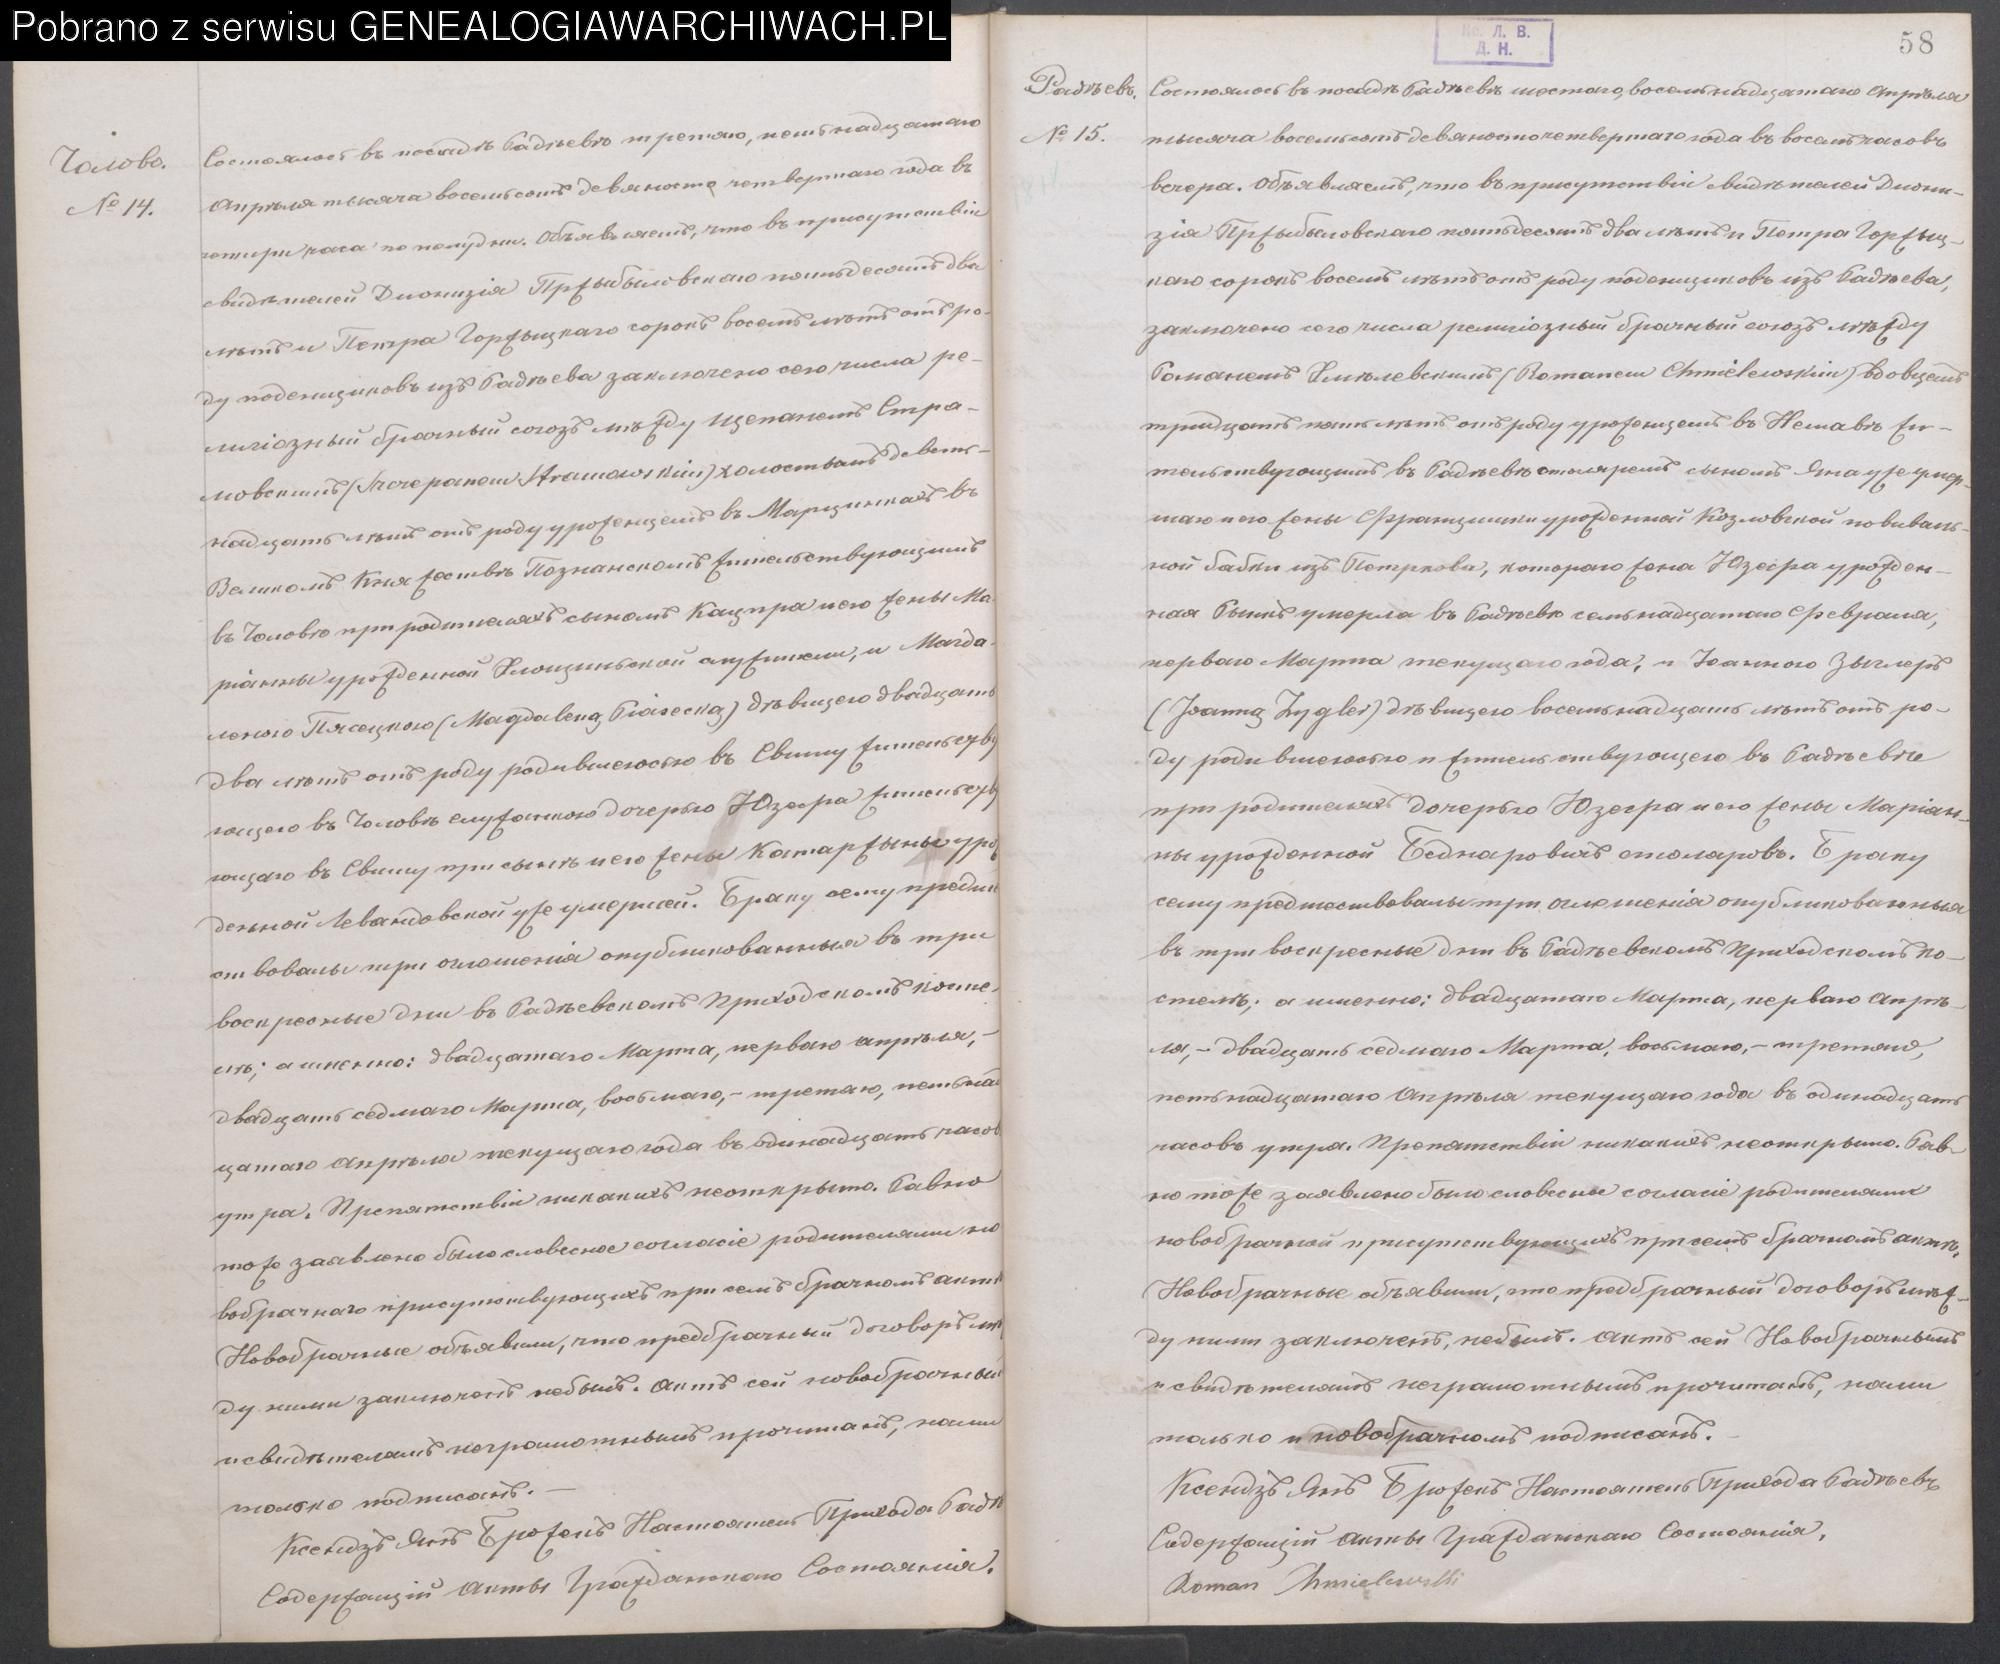 Pobrano z serwisu GENEALOGIAWARCHIWACH.PL
Чолово.
№ 14.
Состоялось въ посадѣ Радѣевѣ третяго, пятьнадцатаго
Апрѣля тысяча восемьсотъ девяносто четвертаго года въ
четыри часа по полудни. Объявляемъ, что въ присутствіи
свидѣтелей Діонизія Пржыбыловскаго пятьдесятъ два
лѣтъ и Петра Горжыцкаго сорокъ восемъ лѣтъ отъ ро-
ду поденщиковъ изъ Радѣева заключено сего числа ре-
лигіозный брачный союзъ между Щепаномъ Стра-
мовскимъ (Szczepanem Stramowskim) холостымъ девять-
надцать лѣтъ отъ роду уроженцемъ въ Марцинкахъ въ
Великомъ Княжествѣ Познанскомъ жительствующимъ
въ Чоловѣ при родителяхъ сыномъ Кацпра и его жены Ма-
ріанны урожденной служители, и Магда-
леною Пясецкою (Magdaleną Piasecką) дѣвицею двадцать
два лѣтъ отъ роду родившеюсью въ Свишу жительству
ющею въ Чоловѣ служанкою дочерью Юзефа жительству
ющаго въ Свишу при сынѣ и его жены Катаржыны урож
денной Левандовской уже умершей. Браку сему предше
ствовалы три оглошенія опубликованныя въ три
воскресные дни въ Радѣевскомъ Приходскомъ косте-
лѣ; а именно: двадцатаго Марта, перваго апрѣля,-
двадцать седмаго Марта, восьмаго,- третяго, пятьнад
цатаго Апрѣля текущаго года въ одинадцать часов
утра. Препятствіи никакихъ неоткрыто. Равно
тоже заявлено было словесное согласіе родителями но
вобрачнаго присутствующихъ при семъ брачномъ актѣ
Новобрачные объявили, что предбрачный договоръ меж
ду ними заключенъ небылъ. Актъ сей новобрачным
и свидѣтелямъ неграмотнымъ прочитанъ, нами
только подписанъ.-
Ксендзъ Янъ Брожекъ Настоятель Прихода Радѣ
Содержащій Акты Гражданскаго Состоянія.
Кс. Л. В.
Д. Н.
58
Радѣевъ.
№ 15.
Состоялось въ посадѣ Радѣевѣ шестаго, восемьнадцатаго Апрѣля
тысяча восемьсотъ девяносто четвертаго года въ восемъ часовъ
вечера. Объявляемъ, что въ присутствіи свидѣтелей Діони-
зія Пржыбыловскаго пятьдесятъ два лѣтъ и Петра Горжыц-
каго сорокъ восемъ лѣтъ отъ роду поденщиковъ изъ Радѣева,
заключено сего числа религіозный брачный союзъ между
Романемъ Хмѣлевскимъ (Romanem Chmielewskim) вдовцемъ
тридцать пять лѣтъ отъ роду уроженцемъ въ жи-
тельствующимъ въ Радѣевѣ столяремъ сыномъ Яна уже умер-
шаго и его жены Францишки урожденной Козловской повиваль-
ной бабки изъ Петркова, котораго жена Юзефа урожден-
ная умерла въ Радѣевѣ семьнадцатаго Февраля,
перваго Марта текущаго года, и Іоанною Зыглеръ
(Joanną Zygler) дѣвицею восемьнадцать лѣтъ отъ ро-
ду родившеюсью и жительствующею въ Радѣевѣ
при родителяхъ дочерью Юзефа и его жены Маріан-
ны урожденной Беднаровичъ столяровъ. Браку
сему предшествовалы три оглошенія опубликованныя
въ три воскресные дни въ Радѣевскомъ Приходскомъ ко-
стелѣ; а именно: двадцатаго Марта, перваго Апрѣ-
ля,- двадцать седмаго Марта, восьмаго,- третяго,
пятьнадцатаго Апрѣля текущаго года въ одинадцать
часовъ утра. Препятствіи никакихъ неоткрыто. Рав-
но тоже заявлено было словесное согласіе родителями
новобрачной присутствующихъ при семъ брачномъ актѣ.
Новобрачные объявили, что предбрачный договоръ меж-
ду ними заключенъ, небылъ. Актъ сей Новобрачнымъ
и свидѣтелямъ неграмотнымъ прочитанъ, нами
только и новобрачномъ подписанъ.-
Ксендзъ Янъ Брожекъ Настоятель Прихода Радѣевъ
Содержащій Акты Гражданскаго Состоянія.
Roman Chmielewski